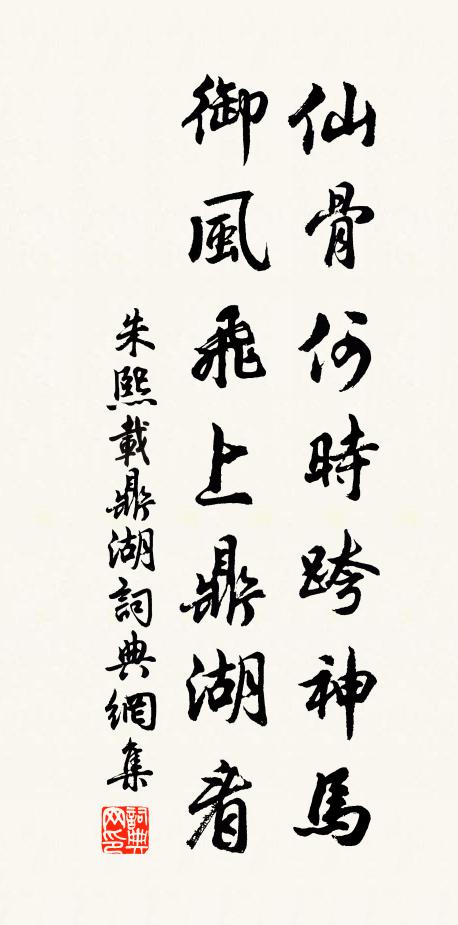 仙骨何時跨神馬
御風飛上鼎湖看
朱熙載鼎湖詞典網集
詞典網印